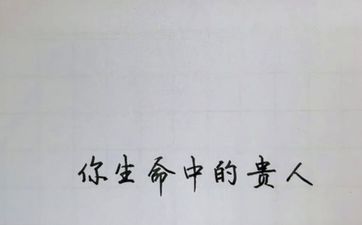 你生命中的贵人